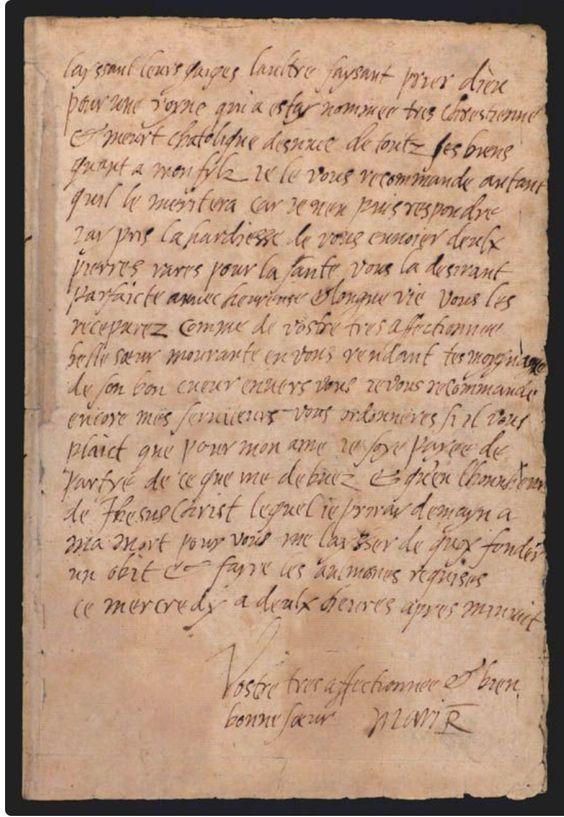 layssant leurs gaiges laultre faysant prier dieu
pour une royne qui a estay nommee tres chrestienne
& meurt chatolique desnuee de toutz ses biens
quant a mon filz ie le vous recommande autant
quil le meritera car ie nen puis respondre
iay pris la hardiesse de vous envoier deulx
pierres rares pour la sante vous la desirant
parfaicte auvec heureuse & longue vie vous les
recepvrez comme de vostre tres affectionnee
belle sœur mourante en vous rendant tesmoygnage
de son bon cueur envers vous ie vous recommande
encore mes serviteurs vous ordonneres si il vous
plaict que pour mon ame ie soye payee de
partye de ce que me debvez & quen lhonneur
de Jhesus Christ lequel ie priray demayn a
ma mort pour vous me laysser de quoy fonder
un obit & fayre les aulmones requises
ce mercredy a deulx heures apres minuit
Vostre tres affectionnee & bien
bonne sœur Mari R